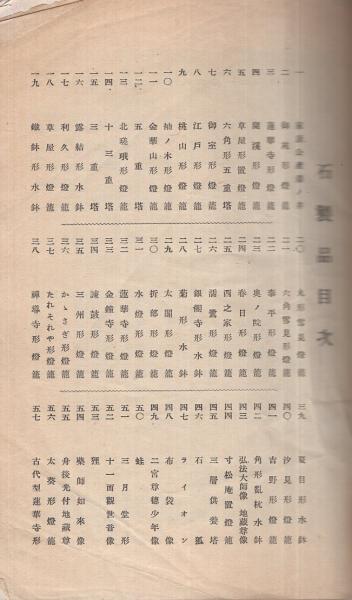 石製品目次
一
二 御苑形燈籠
三 蓮華寺形燈籠
四 蘭溪形燈籠
五 草屋形置燈籠
六 六角形五重塔
七 御室形燈籠
八 江戸形燈籠
九 桃山形燈籠
一〇 柚ノ木形燈籠
一一 金華山形燈籠
一二 五重塔
一三 北嵯峨形燈籠
一四 十三重塔
一五 三重塔
一六 露結形水鉢
一七 利久形燈籠
一八 草屋形燈籠
一九 鐵鉢形水鉢
二〇 丸形雪見燈籠
二一 六角雪見形燈籠
二二 泰平形燈籠
二三 奥ノ院形燈籠
二四 春日形燈籠
二五 西之家形燈籠
二六 濡鷺形燈籠
二七 銀閣寺形水鉢
二八 菊形水鉢
二九 太閤形燈籠
三〇 折部形燈籠
三一 水燈形燈籠
三二 蓮華寺形燈籠
三三 金鐘寺形燈籠
三四 諫鼓形燈籠
三五 三州形燈籠
三六 かゝさぎ形燈籠
三七 たれそれや形燈籠
三八 禪導寺形燈籠
三九 夏目形水鉢
四〇 汐見形燈籠
四一 吉野形燈籠
四二 角形亂杭水鉢
四三 弘法大師像 地藏尊像
四四 寸松庵置燈籠
四五 三層供養塔
四六 石狐
四七 ライオン
四八 布袋像
四九 二宮尊德少年像
五〇 蛙
五一 三月堂形
五二 十一面觀世音像
五三 狸
五四 藥師如來像
五五 舟後光付地藏尊
五六 太葵形燈籠
五七 古代型蓮華寺形